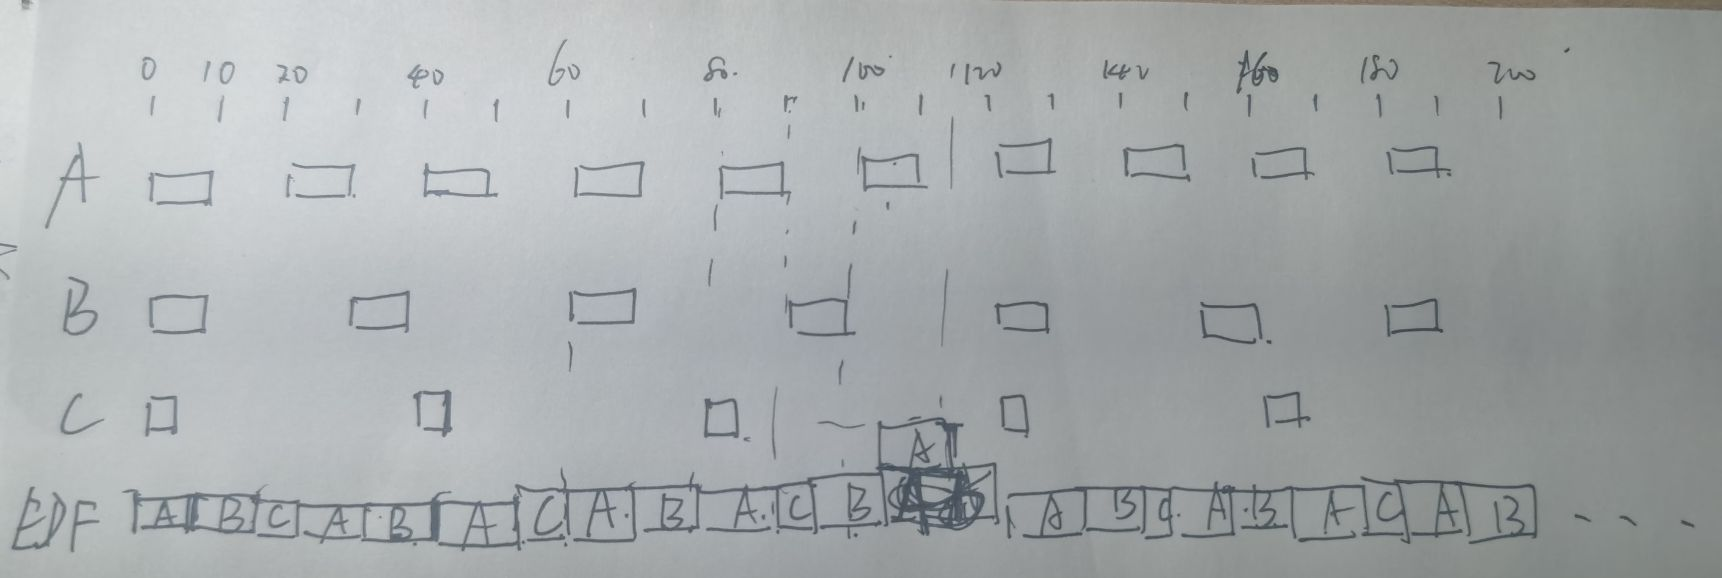 0 10 20 40 60 80 100 120 140 160 180 200
A
B
C
A
EDF A B C A B A C A B A C B A B C A B A C A B - - -